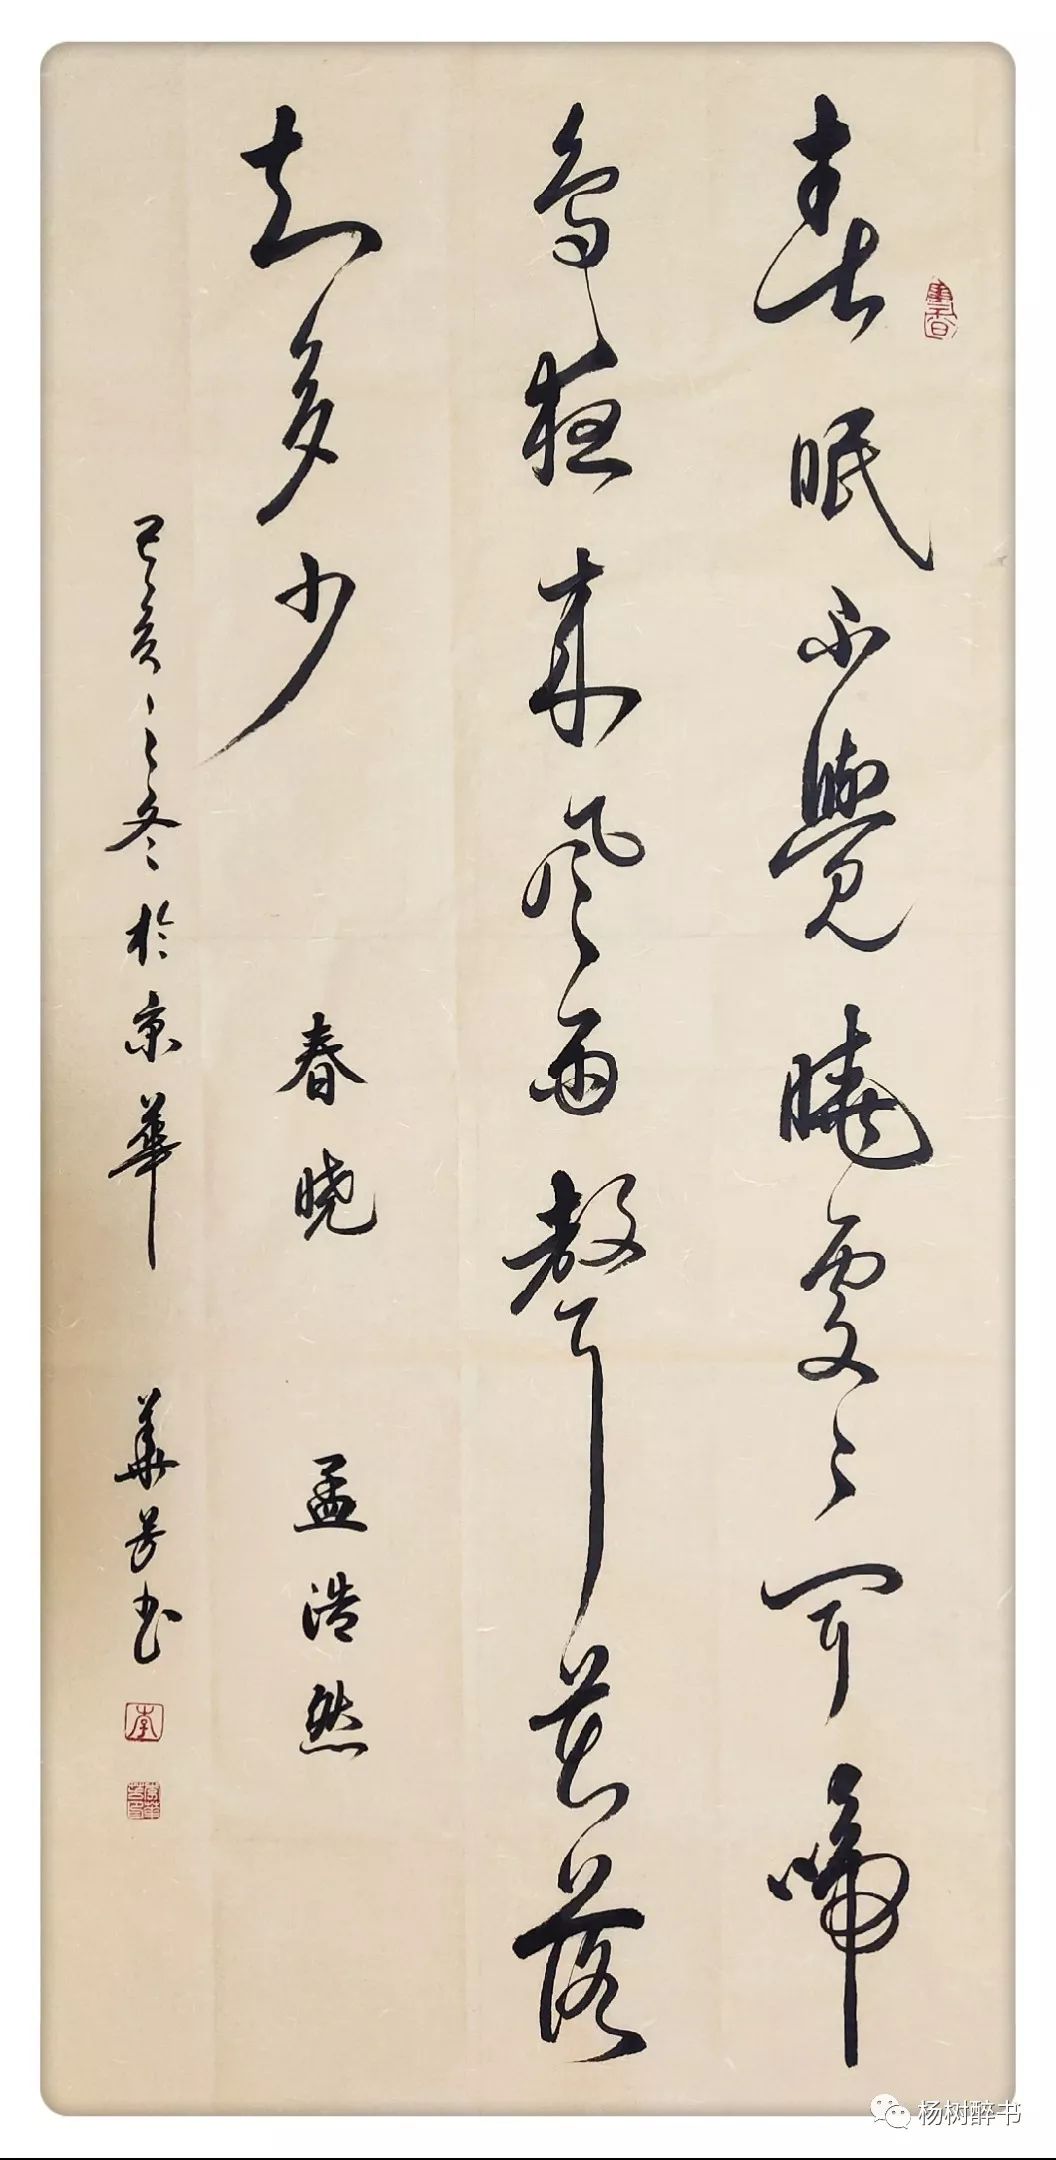 書香
春眠不覺曉處々聞啼
鸟夜来風雨聲花落
知多少 春晓 孟浩然
己亥之冬於京華 華芳书
李
杨树醉书